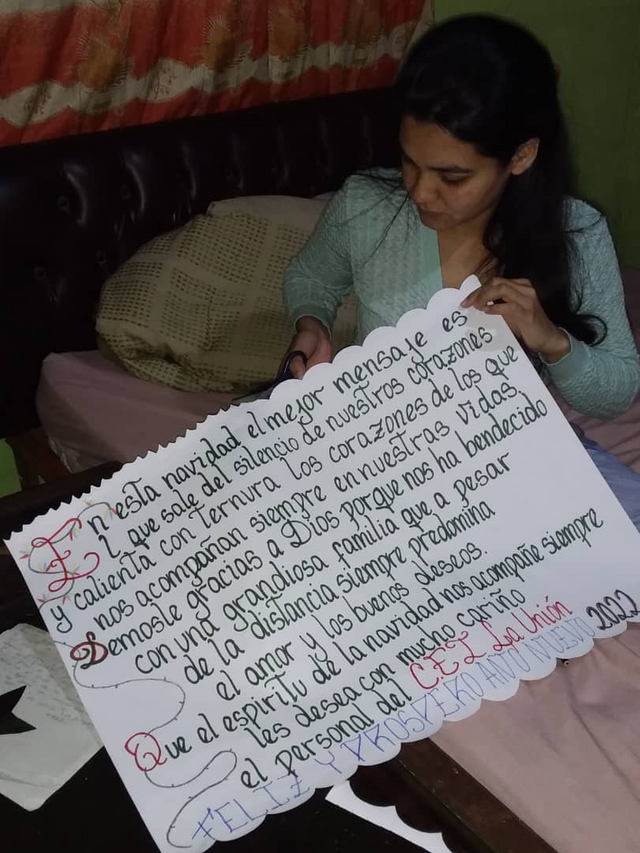 En esta navidad el mejor mensaje es
El que sale del silencio de nuestros corazones
y calienta con ternura los corazones de los que
nos acompañan siempre en nuestras vidas.
Demosle gracias a Dios porque nos ha bendecido
con una grandiosa familia que a pesar
de la distancia siempre predomina
el amor y los buenos deseos.
Que el espiritu de la navidad nos acompañe siempre
les desea con mucho cariño
el personal del C.E.I La Unión
FELIZ Y PROSPERO AÑO NUEVO 2022